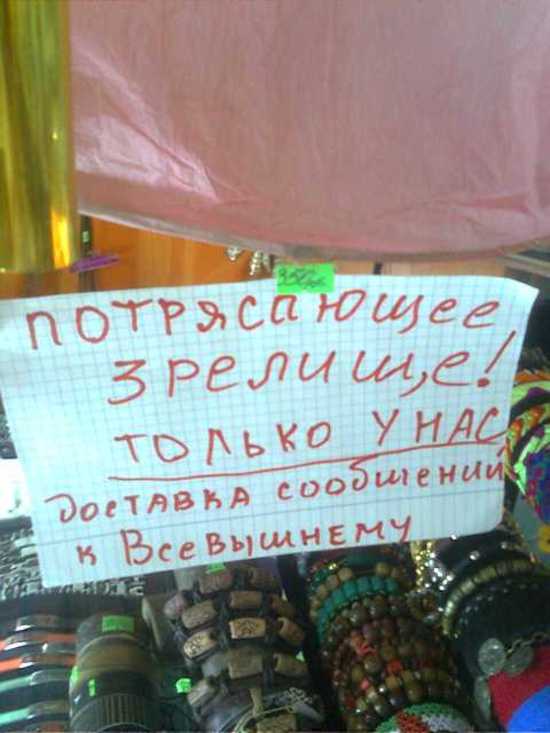 350
ПОТРЯСАЮЩЕЕ
ЗРЕЛИЩЕ!
ТОЛЬКО У НАС
ДОСТАВКА СООБЩЕНИЙ
К ВСЕВЫШНЕМУ